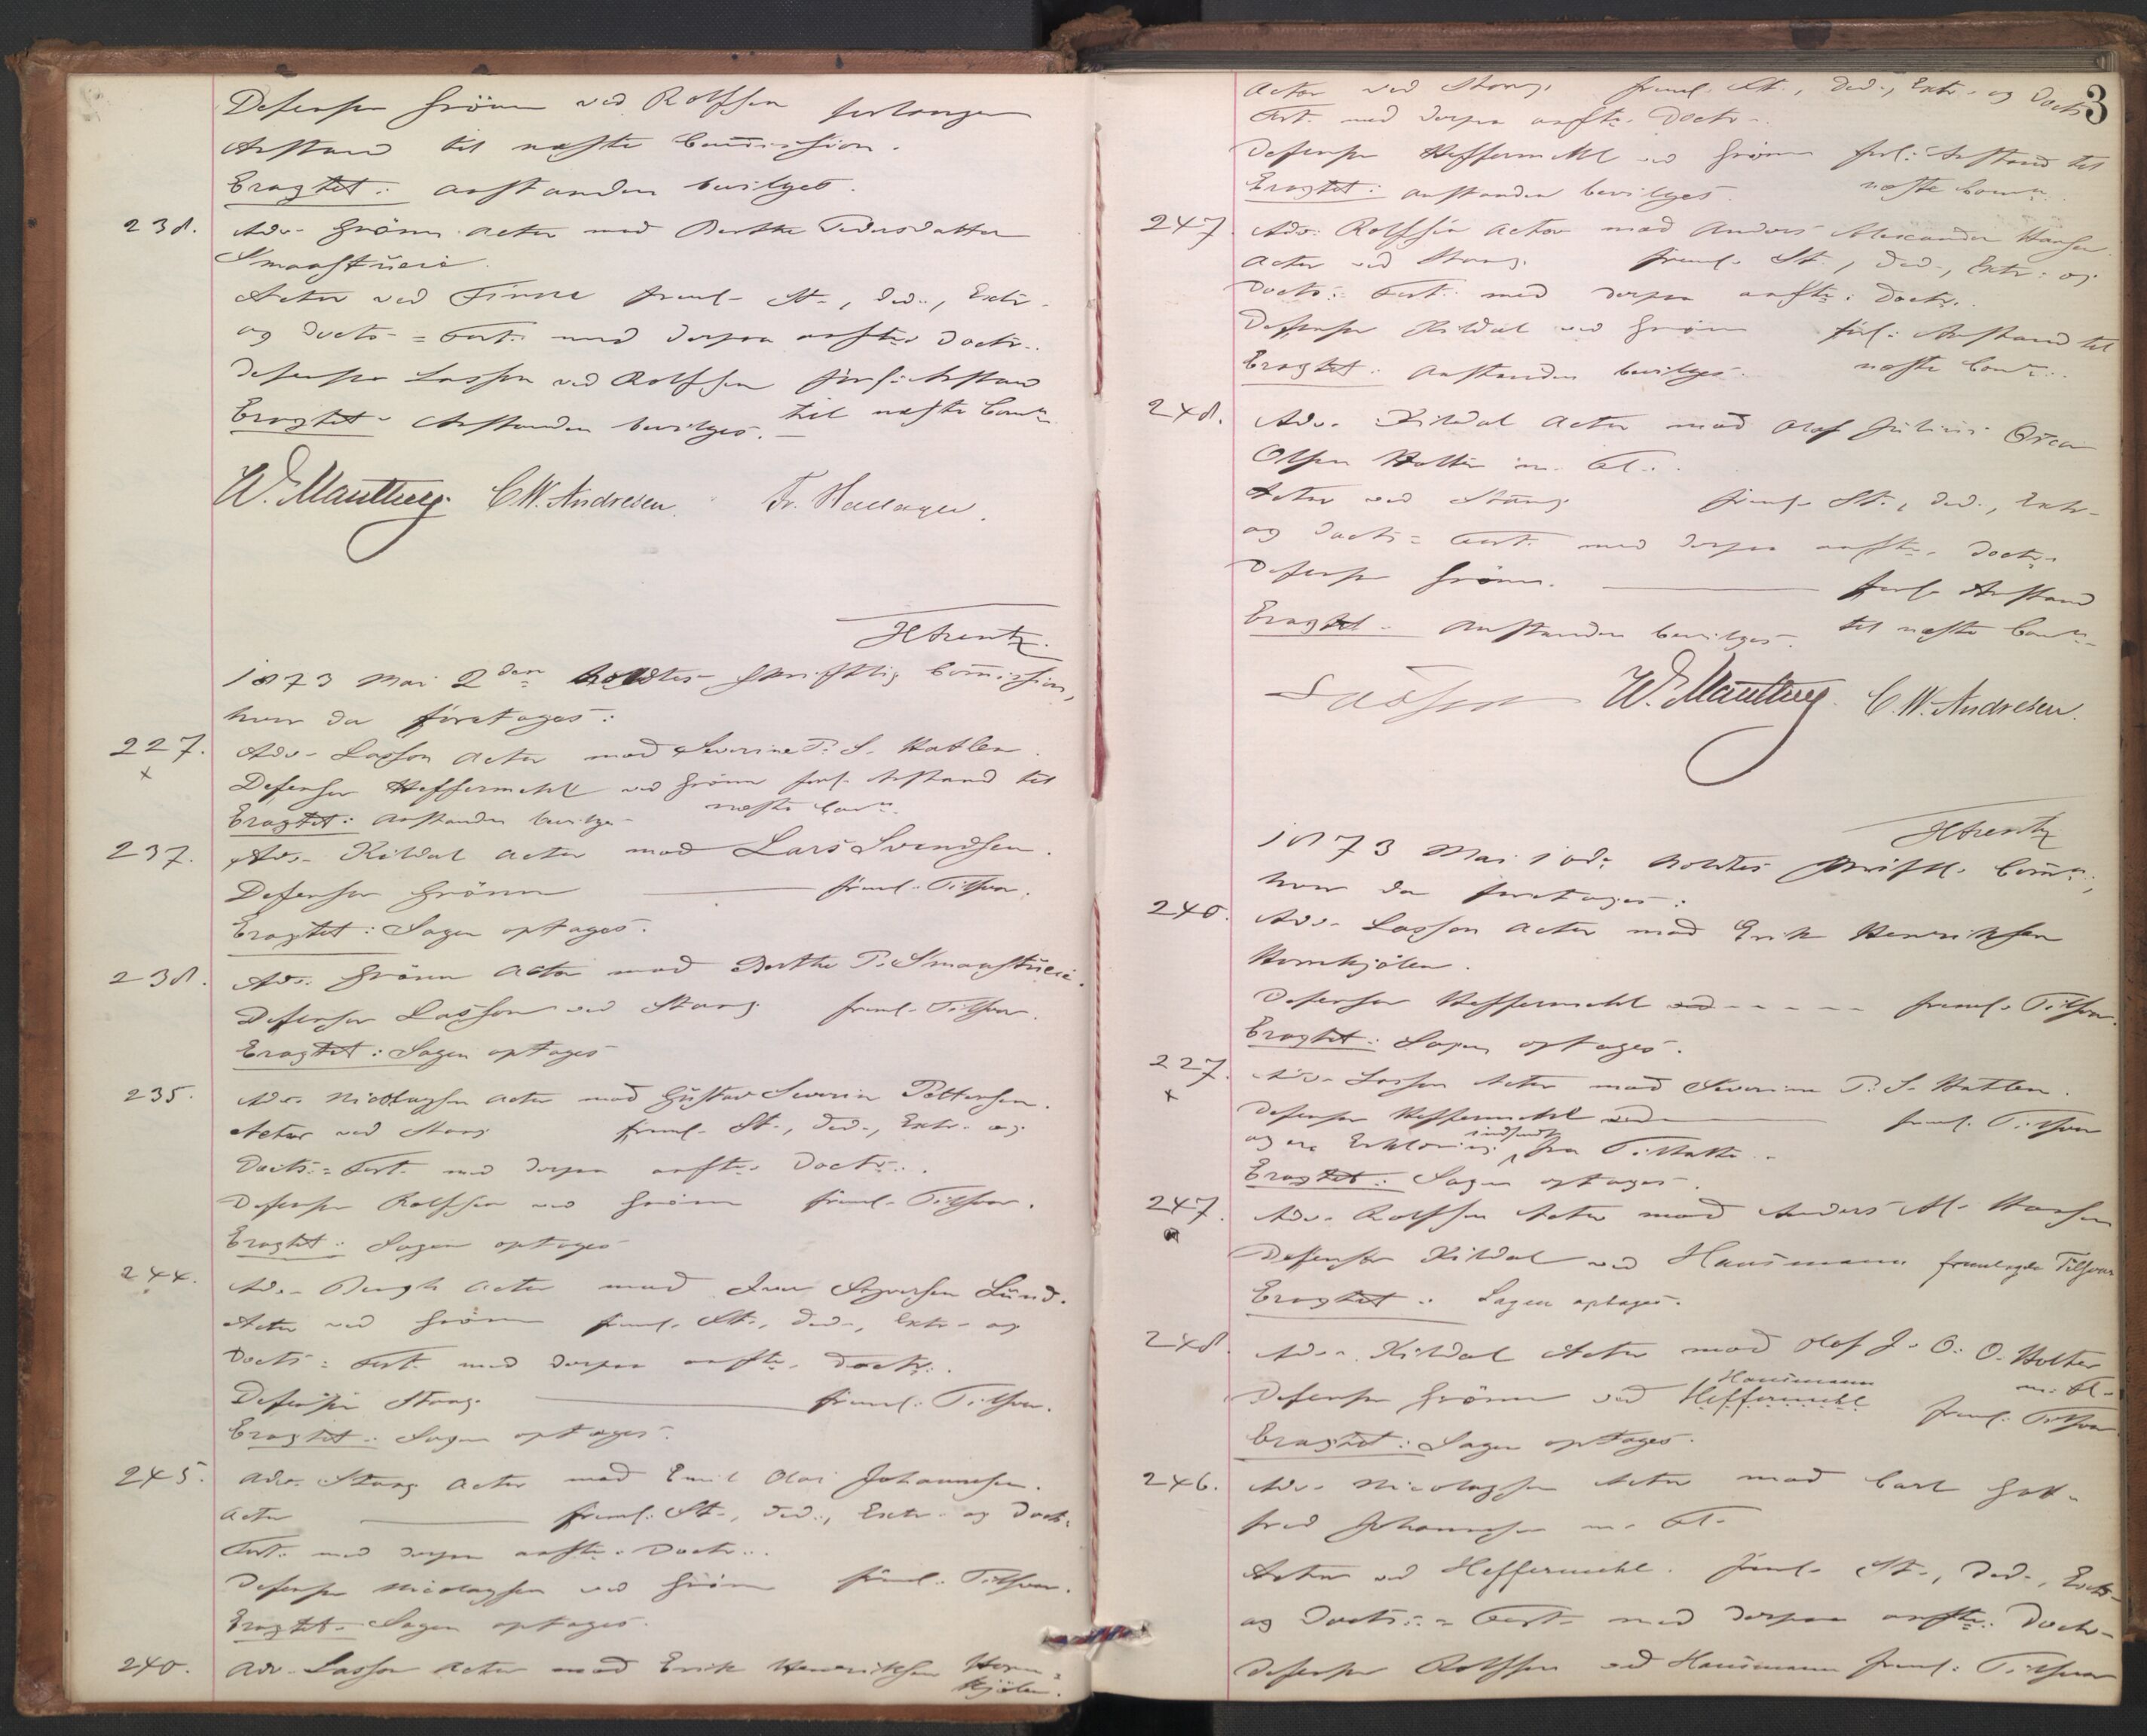 Defensor Grönn ved Rolfsen forlanger
Anstand til næste Commission.
Eragtet: Anstanden bevilges.
238. Adv. Grönn Actor mod Berthe Pedersdatter
Smaastueie.
Actor ved Finne freml. St., Ded., Extr.
og Docts = Fort. med derpaa anfte. Doctr.
Defensor Lasson ved Rolfsen forl. Anstand
til næste Comn.
Eragtet: Anstanden bevilges.
C.W. Andresen.
1873 Mai 2den holdtes skriftlig Commission,
hvor da foretoges:
227. Adv. Lasson Actor mod Severine P. S. Hatlen.
x Defensor Heffermehl ved Grönn forl. Anstand til
næste Comn.
Eragtet: Anstanden bevilges
237. Adv. Kildal Actor mod Lars Svendsen.
Defensor Grönn freml. Tilsvar.
Eragtet: Sagen optages.
238. Adv. Grönn Actor mod Berthe P. Smaastueie.
Defensor Lasson ved Stang freml. Tilsvar.
Eragtet: Sagen optages
235. Adv. Nicolaysen Actor mod Gustav Severin Pettersen.
Actor ved Stang freml. St., Ded., Extr. og
Docts = Fort. med derpaa anfte. Doctr.
Defensor Rolfsen ved Grönn freml. Tilsvar.
Eragtet: Sagen optages
244. Adv. Bergh Actor mod Iver Syversen Lund.
Actor ved Grönn freml. St., Ded., Extr. og
Docts = Fort. med derpaa anfte. Doctr.
Defensor Stang freml. Tilsvar.
Eragtet: Sagen optages.
245. Adv. Stang Actor mod Emil Olai Johannesen.
Actor freml. St., Ded., Extr. og Docts =
Fort. med derpaa anfte. Doctr.
Defensor Nicolaysen ved Grönn freml. Tilsvar.
Eragtet: Sagen optages.
240. Adv. Lasson Actor mod Erik Henriksen Horn=
kjölen.
3
Actor ved Stang freml. St., Ded., Extr. og Docts
Fort. med derpaa anfte. Doctr.
Defensor Heffermehl ved Grönn forl: Anstand til
næste Comn.
Eragtet: Anstanden bevilges.
247. Adv. Rolfsen Actor mod Anders Alexander Hansen.
Actor ved Stang freml. St., Ded., Extr. og
Docts = Fort. med derpaa anfte. Doctr.
Defensor Kildal ved Grönn forl: Anstand til
næste Comn.
Eragtet: Anstanden bevilges.
248. Adv. Kildal Actor mod Olaf Julius Oscar
Olsen Holter m. Fl.
Actor ved Stang freml. St., Ded., Extr.
og Docts = Fort. med derpaa anfte. Doctr.
Defensor Grönn. forl. Anstand
til næste Comn.
Eragtet: Anstanden bevilges.
C.W. Andresen.
1873 Mai 10de holdtes skriftl. Comn.,
hvor da foretoges:
240. Adv. Lasson Actor mod Erik Henriksen
Hornkjölen.
Defensor Heffermehl ved freml. Tilsvar.
Eragtet: Sagen optages.
227. Adv. Lasson Actor mod Severine P. S. Hatlen.
x Defensor Heffermehl ved freml. Tilsvar
og en Erklæring indsendt fra Tiltalte.
Eragtet: Sagen optages.
247. Adv. Rolfsen Actor mod Anders Al. Hansen
Defensor Kildal ved Hausmann fremlagde Tilsvar
Eragtet: Sagen optages.
248. Adv. Kildal Actor mod Olaf J. O. O. Holter
m. Fl.
Defensor Grönn ved Heffermehl Hausmann freml. Tilsvar
Eragtet: Sagen optages.
246. Adv. Nicolaysen Actor mod Carl Gott=
fred Johannesen m. Fl.
Actor ved Heffermehl. freml. St., Ded., Extr.
og Docts = Fort. med derpaa anfte. Doctr.
Defensor Rolfsen ved Hausmann freml: Tilsvar